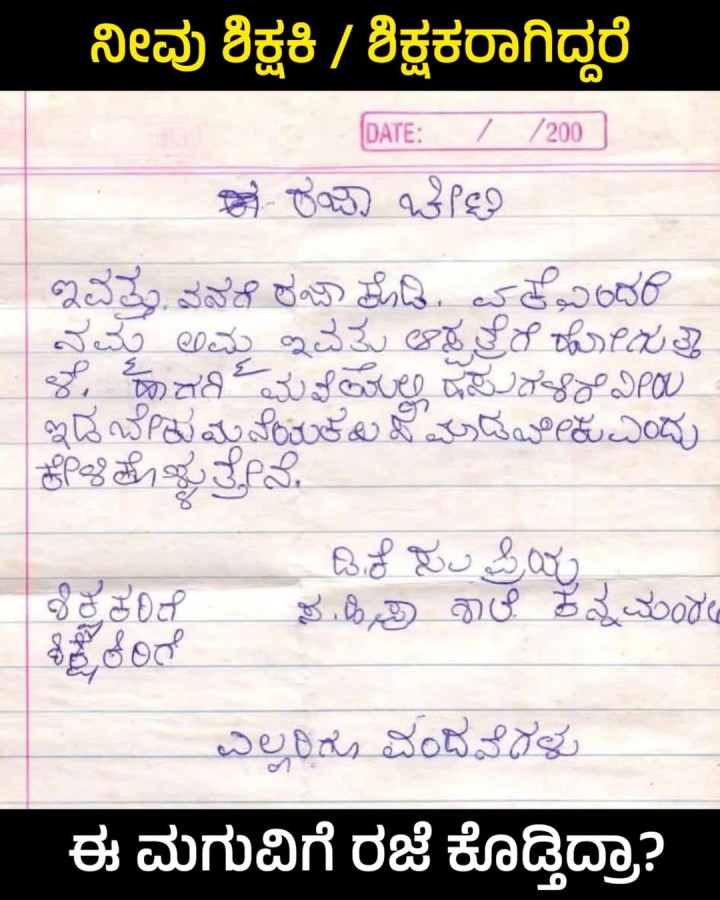 ನೀವು ಶಿಕ್ಷಕಿ / ಶಿಕ್ಷಕರಾಗಿದ್ದರೆ
DATE: / /200
ರಜಾ ಚೀಟಿ
ಇವತ್ತು ನನಗೆ ರಜಾ ಕೊಡಿ. ಎಕೆಎಂದರೆ
ನಮ್ಮ ಅಮ್ಮ ಇವತು ಆಸ್ಪತ್ರೆಗೆ ಹೋಗುತ್ತಾ
ಳೆ. ಹಾಗಗಿ ಮನೆಯಲ್ಲಿ ಹಸುಗಳಿಗೆ ನೀರು
ಇಡಬೇಕು ಮನೆಯ ಮಾಡಬೇಕು ಎಂದು
ಕೇಳಿಕೊಳ್ಳುತ್ತೇನೆ.
ಡಿ.ಕೆ ಪ್ರಿಯ
ಶಿಕ್ಷಕರಿಗೆ ಸ.ಹಿ.ಪ್ರಾ ಶಾಲೆ ಕನ್ನಮಂಗಲ
ಶಿಕ್ಷಕಿರಿಗೆ
ಎಲ್ಲರಿಗೂ ವಂದನೆಗಳು
ಈ ಮಗುವಿಗೆ ರಜೆ ಕೊಡ್ತಿದ್ರಾ?